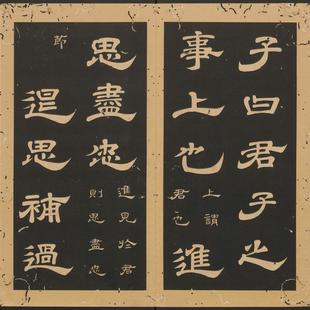 子曰君子之
事上也
上謂
君也
進
思盡忠
進見於君
則思盡忠
節
退思補過